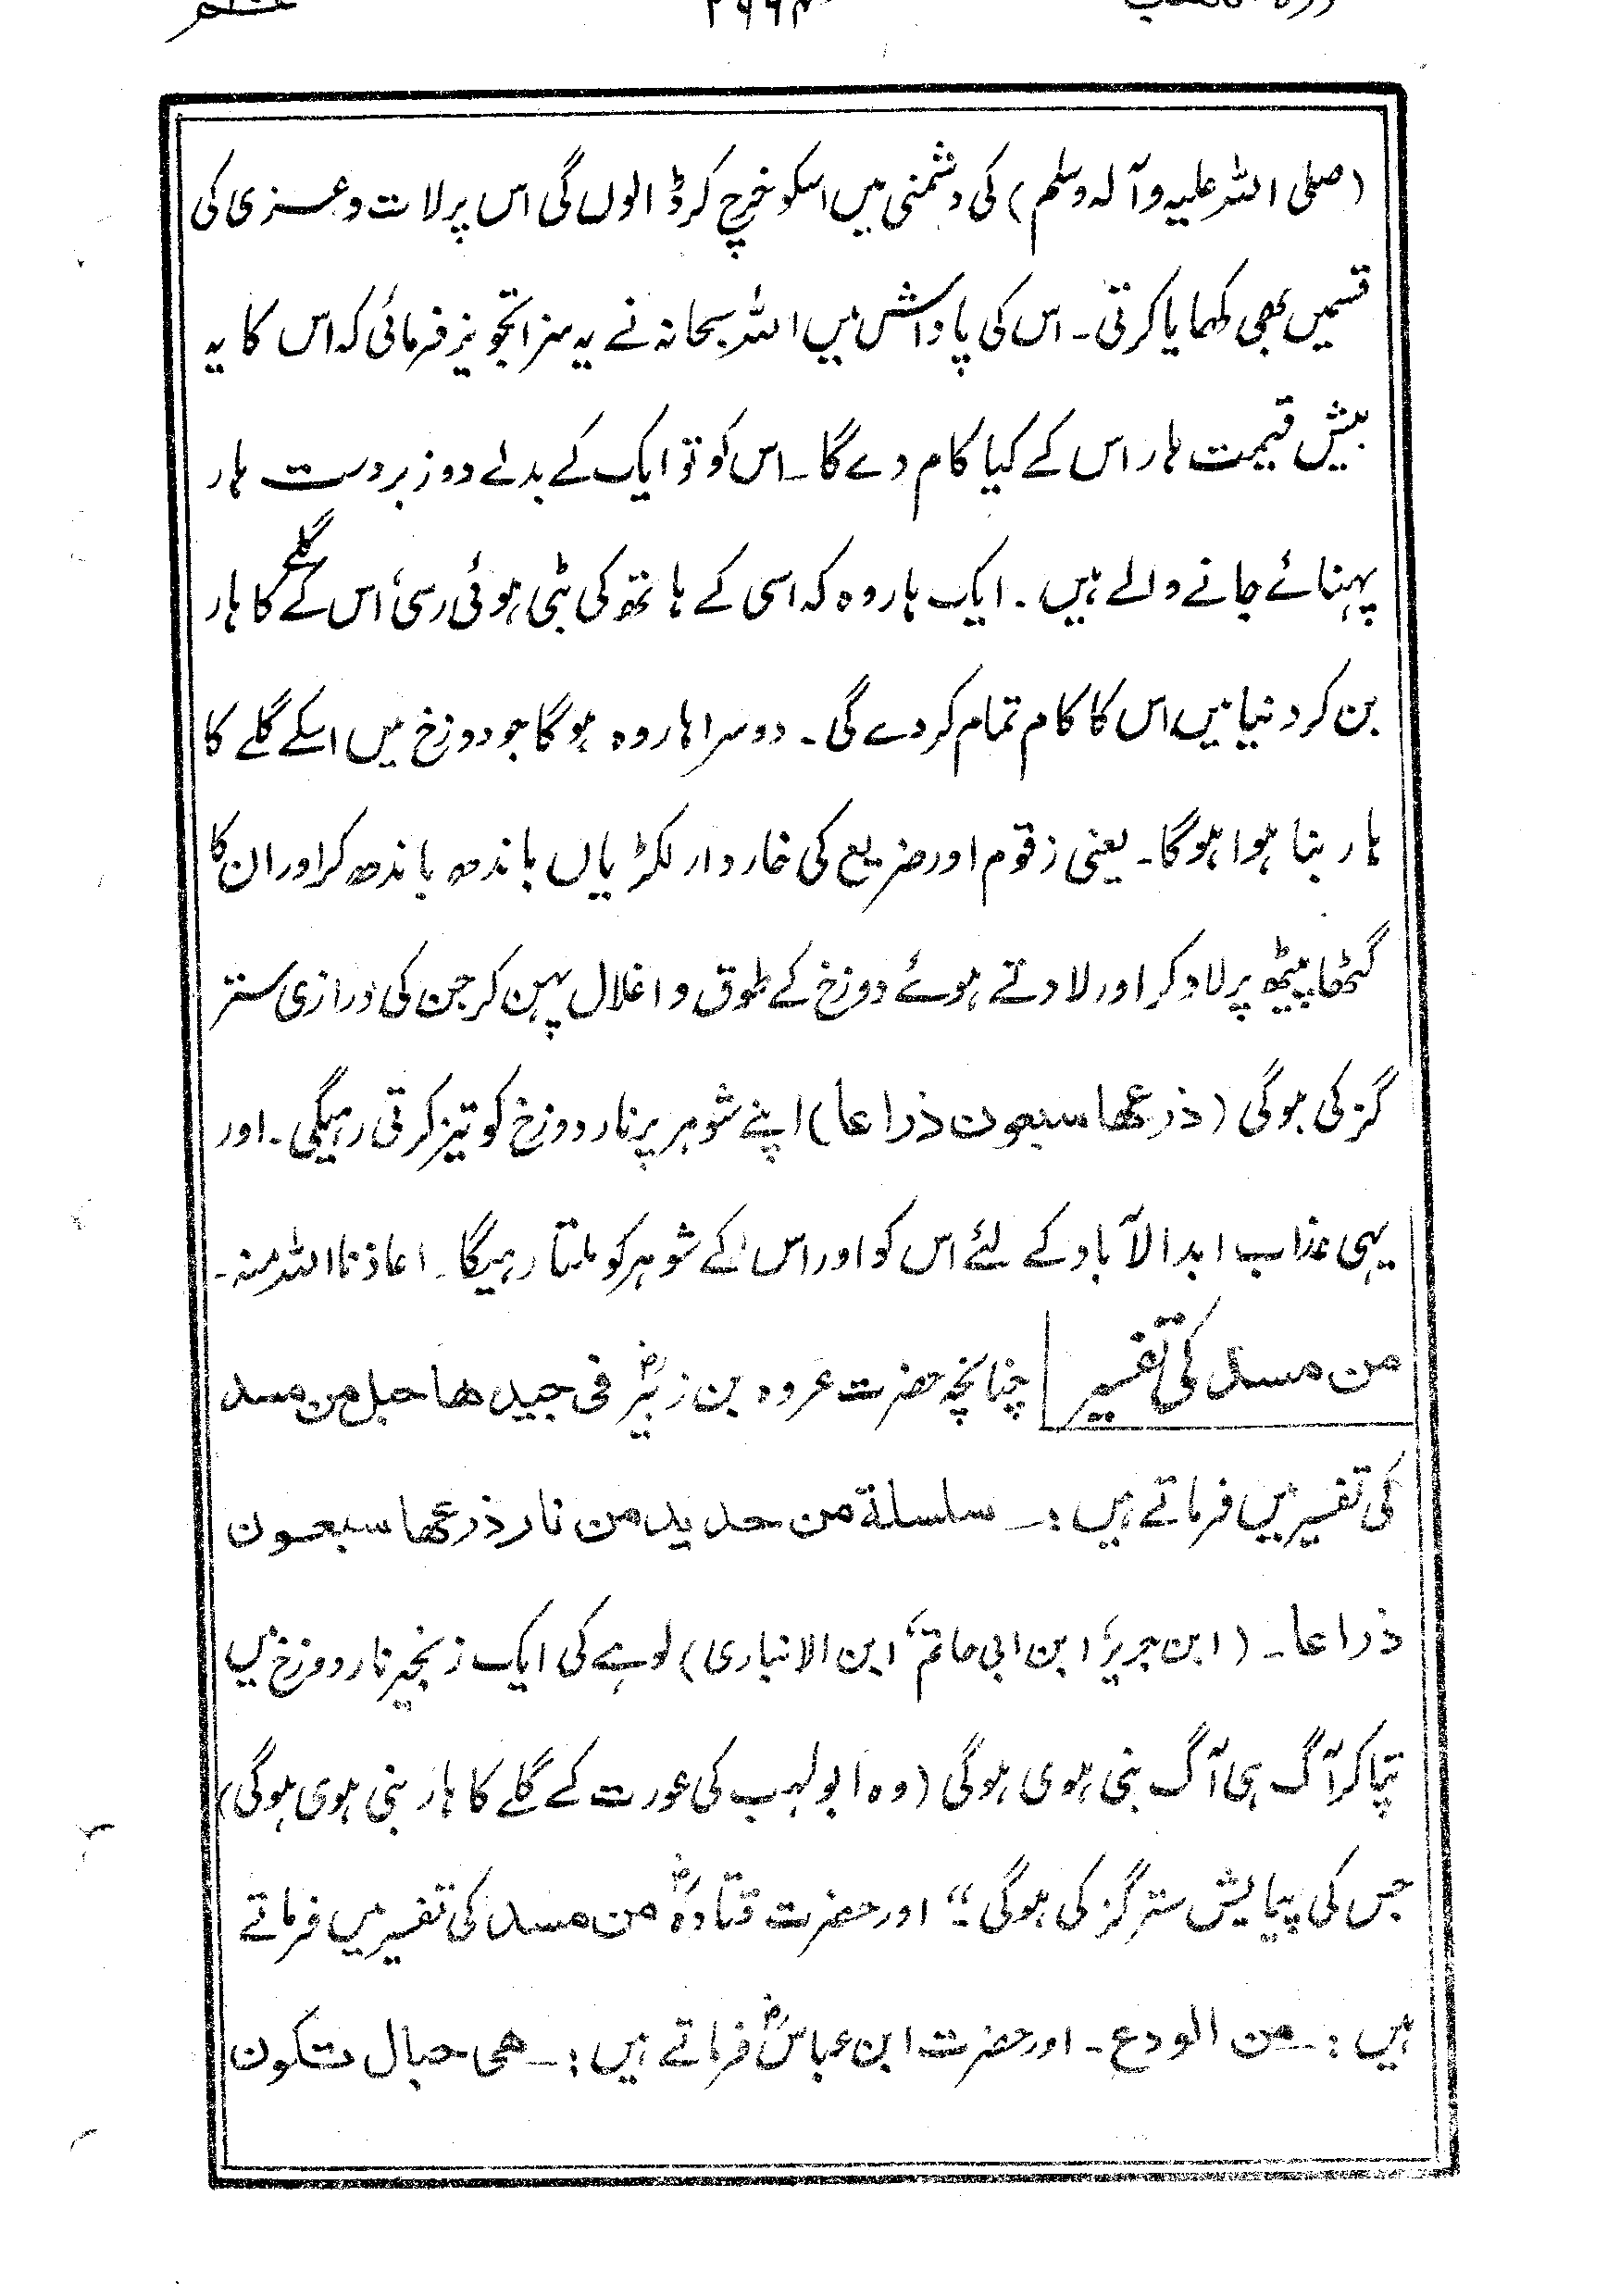 (صلی اللہ علیہ وآلہ وسلم) کی دشمنی میں اسکو خرچ کر ڈالوں گی اس پر لات و عزی کی
قسمیں بھی کھایا کرتی۔ اس کی پاداش میں اللہ سبحانہ نے یہ سزا تجویز فرمائی کہ اس کا یہ
بیش قیمت ہار اس کے کیا کام دے گا۔ اس کو تو ایک کے بدلے دو زبردست ہار
پہنائے جانے والے ہیں۔ ایک ہار وہ کہ اسی کے ہاتھ کی بٹی ہوئی رسی اس کے گلے کا ہار
بن کر دنیا میں اس کا کام تمام کر دے گی۔ دوسرا ہار وہ ہوگا جو دوزخ میں اسکے گلے کا
ہار بنا ہوا ہوگا۔ یعنی زقوم اور ضریع کی خاردار لکڑیاں باندھ باندھ کر اور ان کا
گٹھا پیٹھ پر لاد کر اور لادتے ہوئے دوزخ کے طوق و اغلال پہن کر جن کی درازی ستر
گز کی ہوگی (ذرعھا سبعون ذراعا) اپنے شوہر پر نار دوزخ کو تیز کرتی رہیگی۔ اور
یہی عذاب ابد الآباد کے لئے اس کو اور اس کے شوہر کو ملتا رہیگا۔ اعاذنا اللہ منہ۔
من مسد کی تفسیر چنانچہ حضرت عروہ بن زبیرؓ فی جیدھا حبل من مسد
کی تفسیر میں فرماتے ہیں :۔ سلسلة من حدید من نار ذرعھا سبعون
ذراعا۔ (ابن جریر، ابن ابی حاتم، ابن الانباری) لوہے کی ایک زنجیر نار دوزخ میں
تپا کر آگ ہی آگ بنی ہوی ہوگی (وہ ابولہب کی عورت کے گلے کا ہار بنی ہوی ہوگی)
جس کی پیمایش ستر گز کی ہوگی"۔ اور حضرت قتادہؓ من مسد کی تفسیر میں فرماتے
ہیں :۔ من الودع۔ اور حضرت ابن عباسؓ فرماتے ہیں :۔ ھی حبال تکون